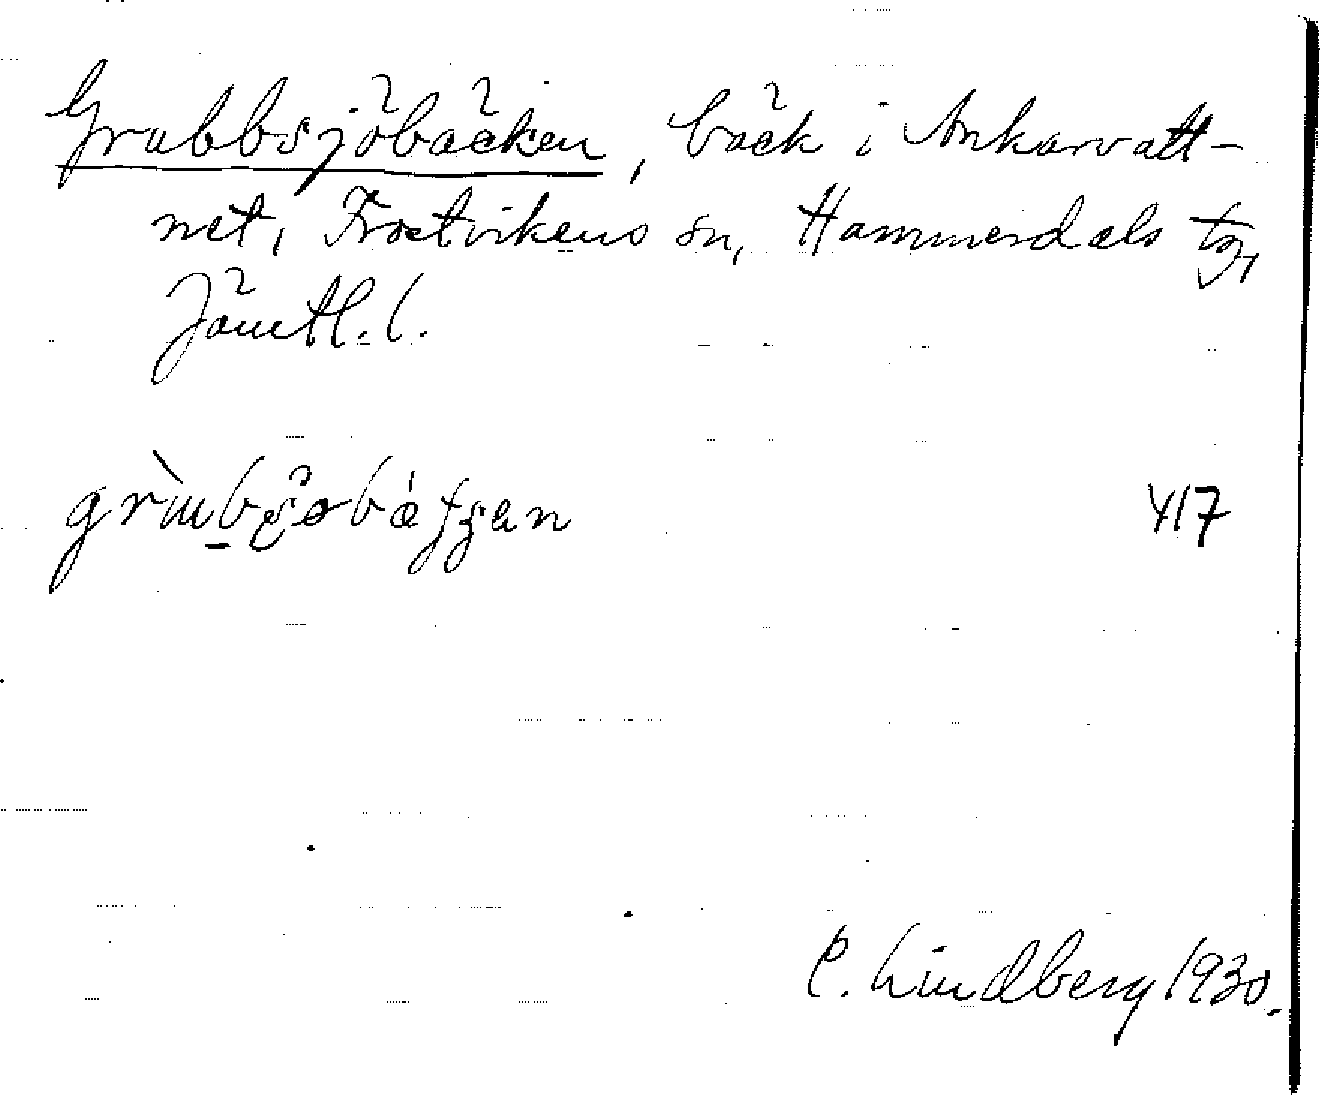 Grubbsjöbäcken, bäck i Ankarvatt-
net, Frostvikens sn, Hammerdals tg,
Jämtl. l.
417
C. Lindberg 1930.